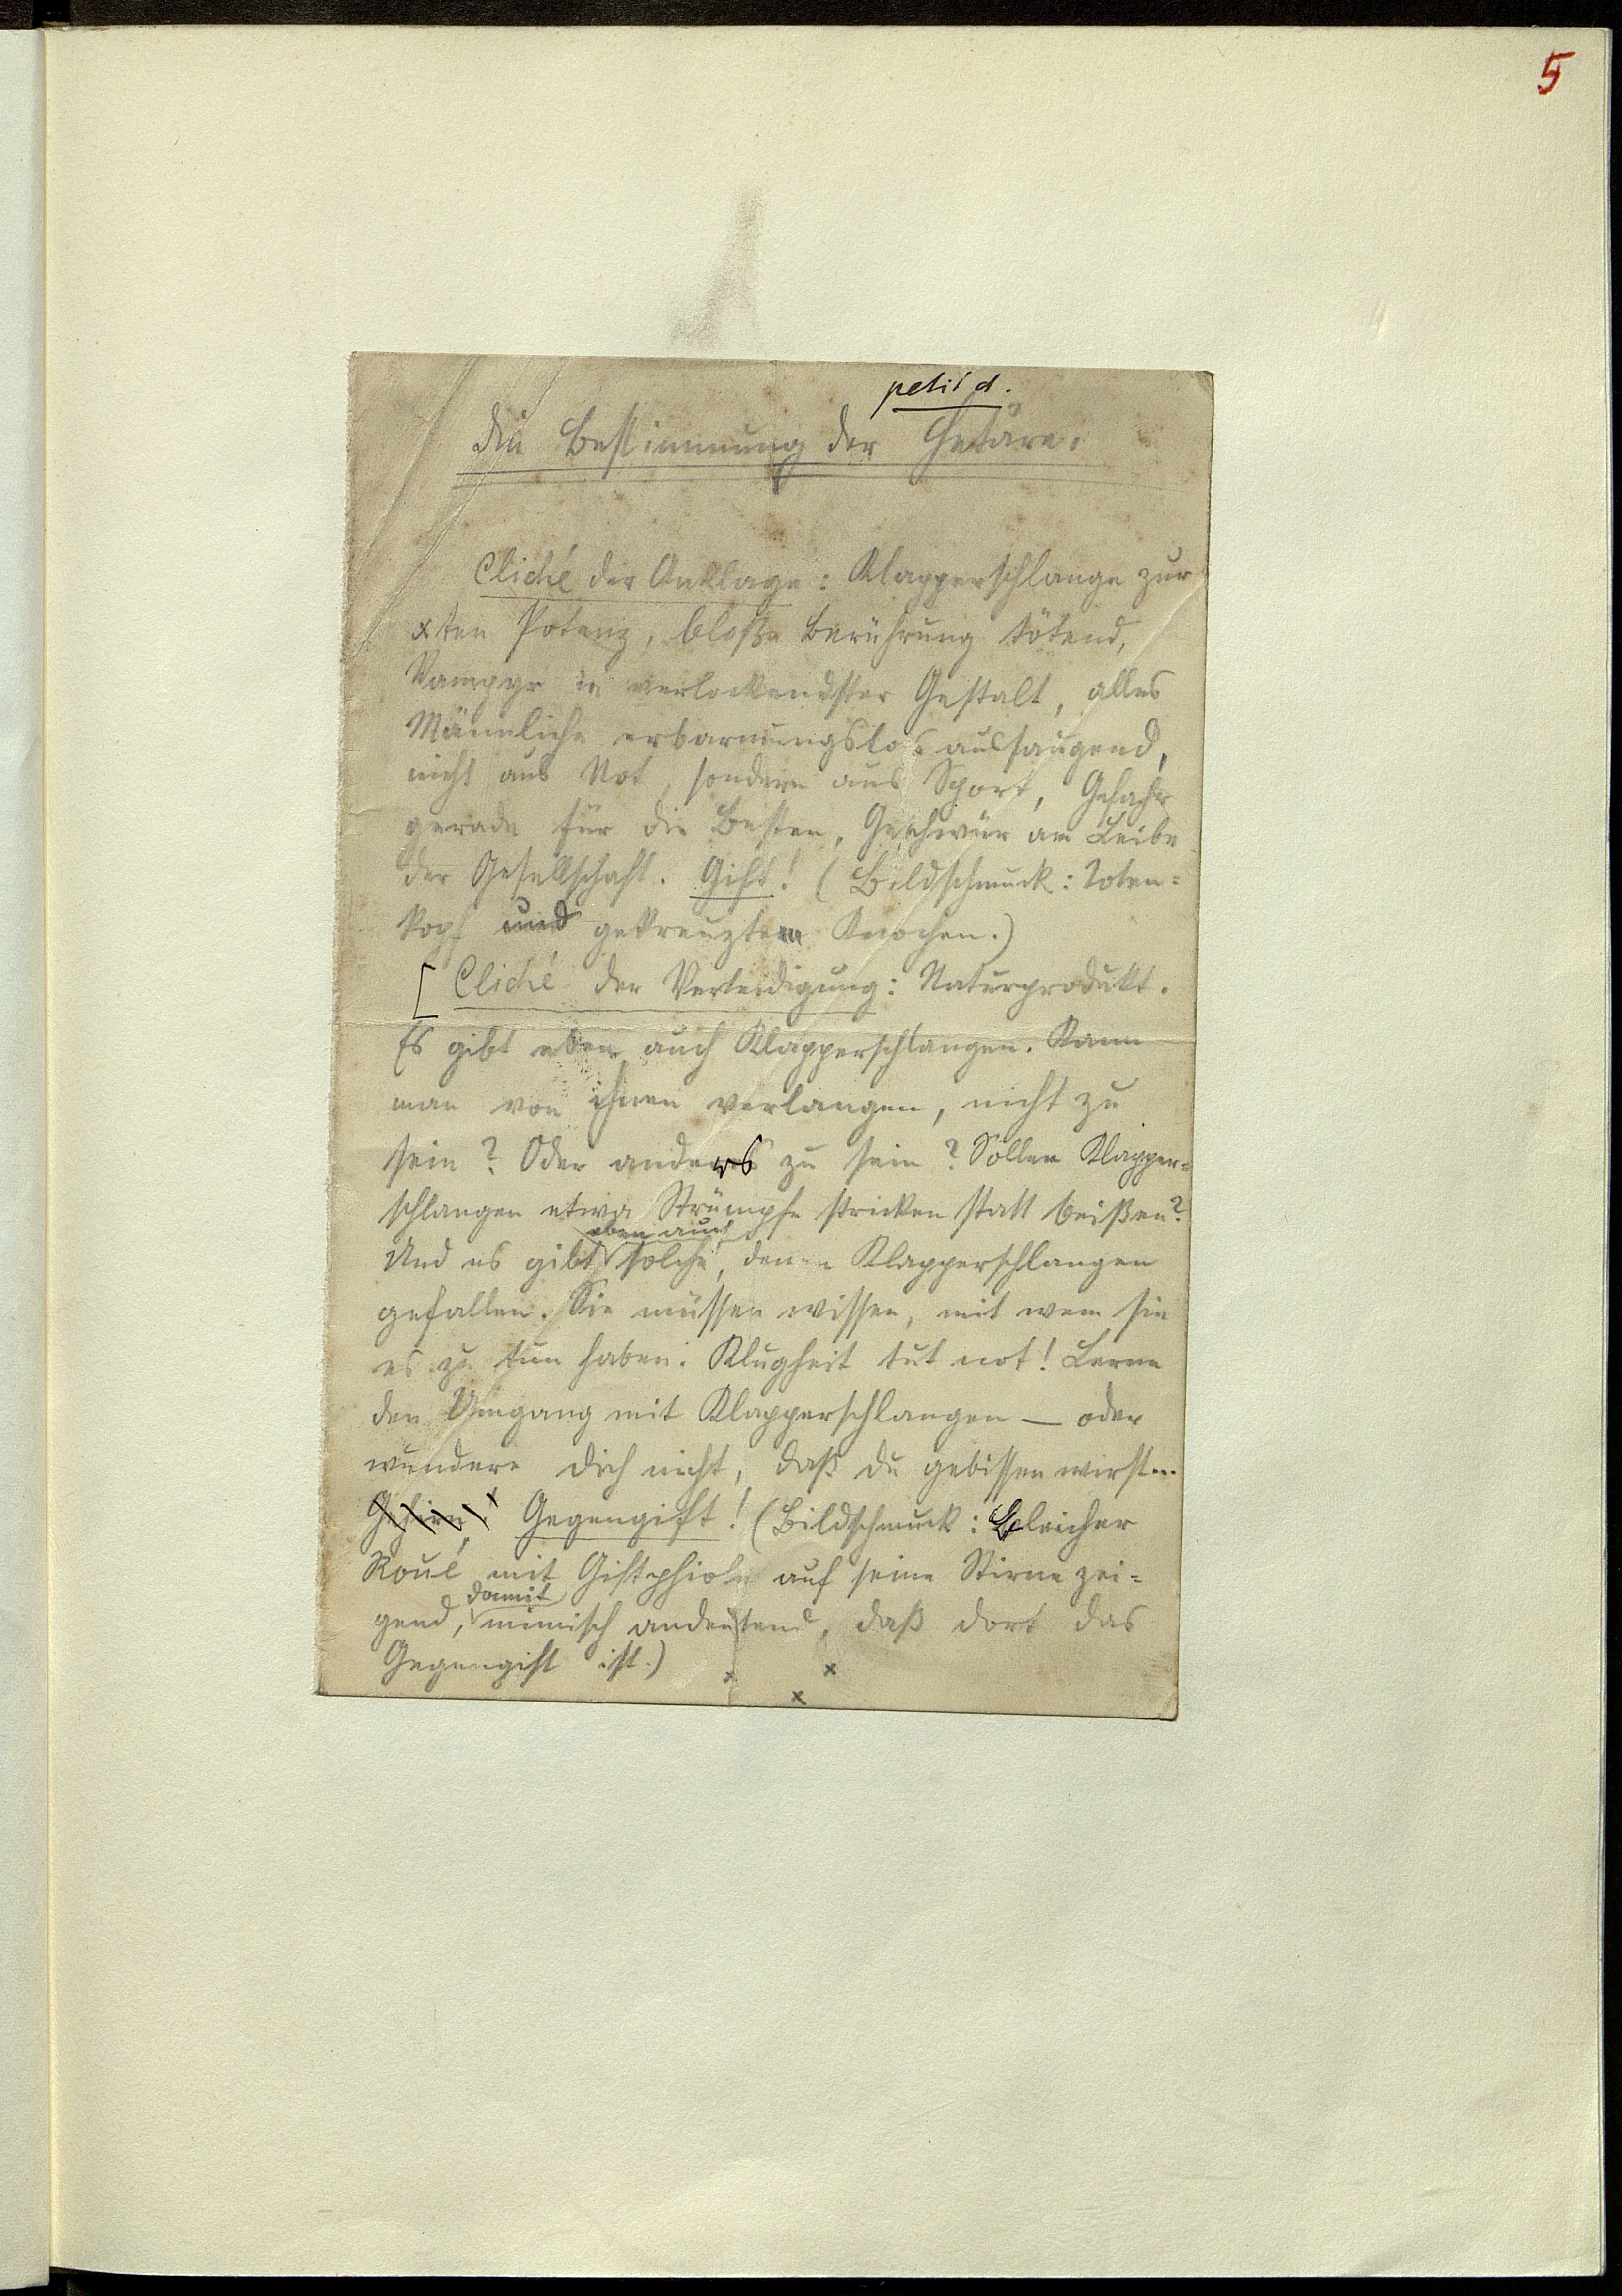 5
petit d.
Die Bestimmung der Hetäre.
Cliché der Anklage: Klapperschlange zur
xten Potenz, bloße Berührung tötend,
Vampyr in verlockendster Gestalt, alles
Männliche erbarmungslos aussaugend,
nicht aus Not, sondern aus Sport, Gefahr
gerade für die Besten, Geschwür am Leibe
der Gesellschaft. Gift! (Bildschmuck: Toten=
kopf und gekreuzten Knochen.)
[Cliché der Verteidigung: Naturprodukt.
Es gibt eben auch Klapperschlangen. Kann
man von ihnen verlangen, nicht zu
sein? Oder anders zu sein? Sollen Klapper=
schlangen etwa Strümpfe stricken statt beißen?
eben auch
Und es gibt solche, denen Klapperschlangen
gefallen. Sie müssen wissen, mit wem sie
es zu tun haben. Klugheit tut not! Lerne
den Umgang mit Klapperschlangen — oder
wundere dich nicht, daß du gebissen wirst...
Gehirn! Gegengift! (Bildschmuck: Bleicher
Roué mit Giftphiole auf seine Stirne zei=
damit
gend, mimisch andeutend, daß dort das
Gegengift ist.)
x x
x